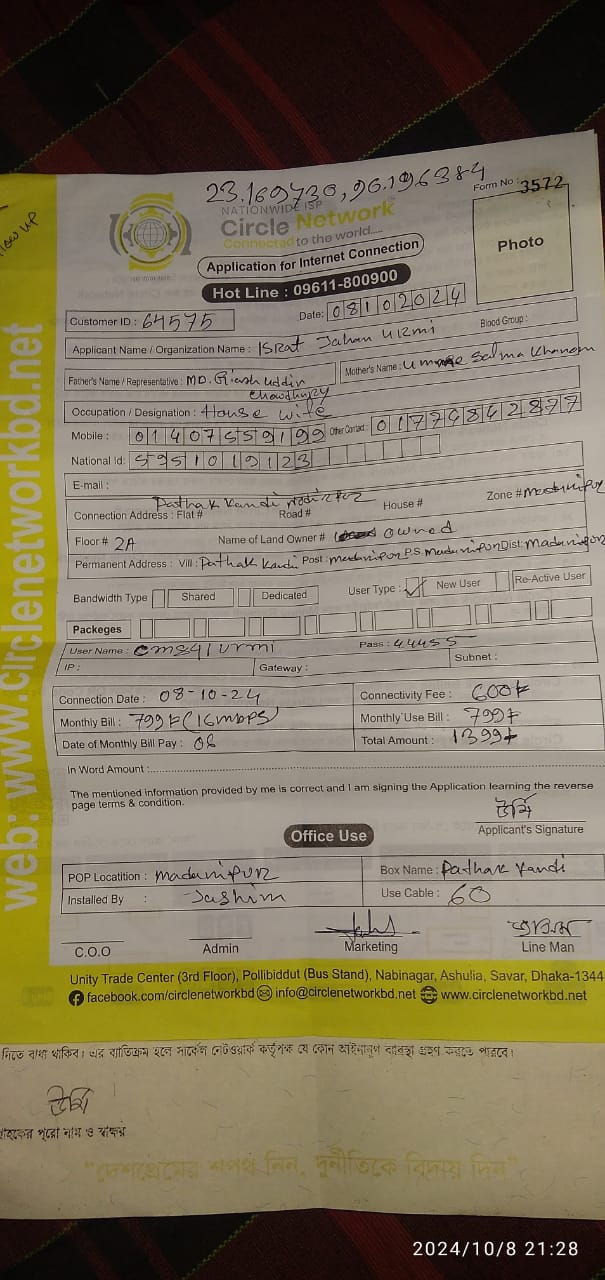 23.169730, 90.196384
Form No : 3572
NATIONWIDE ISP
Circle Network
Connected to the world....
Application for Internet Connection
Photo
Hot Line : 09611-800900
Customer ID : 64575
Date: 08102024
Applicant Name / Organization Name : ISRat Jahan URmi
Blood Group :
Father's Name / Representative : MD. Giash Uddin Chowdhury
Mother's Name : Selma Khanom
Occupation / Designation : House wife
Mobile : 01407559199 Other Contact : 01774842877
National Id: 5951019123
E-mail :
Connection Address : Flat# Pathak Kandi Road# House # Zone # madaripur
Floor # 2A Name of Land Owner # owned
Permanent Address : Vill : Pathak Kandi Post : madaripur P.S. Madaripur Dist: Madaripur
Bandwidth Type Shared Dedicated User Type : New User Re-Active User
Packeges
User Name : cms41urmi Pass : 44455
IP : Gateway : Subnet :
Connection Date : 08-10-24 Connectivity Fee : 600৳
Monthly Bill : 799৳ (16mbps) Monthly Use Bill : 799৳
Date of Monthly Bill Pay : 08 Total Amount : 1399৳
In Word Amount :
The mentioned information provided by me is correct and I am signing the Application learning the reverse
page terms & condition.
উর্মি
Applicant's Signature
Office Use
POP Locatition : madaripur Box Name : Pathak Kandi
Installed By : Jashim Use Cable : 60
C.O.O Admin Marketing Line Man
Unity Trade Center (3rd Floor), Pollibiddut (Bus Stand), Nabinagar, Ashulia, Savar, Dhaka-1344
facebook.com/circlenetworkbd info@circlenetworkbd.net www.circlenetworkbd.net
web: www.circlenetworkbd.net
নিতে বাধ্য থাকিব। এর ব্যতিক্রম হলে সার্কেল নেটওয়ার্ক কর্তৃপক্ষ যে কোন আইনানুগ ব্যবস্থা গ্রহণ করতে পারবে।
উর্মি
গ্রাহকের পুরো নাম ও স্বাক্ষর
"দেশপ্রেমের শপথ নিন, দুর্নীতিকে বিদায় দিন"
2024/10/8 21:28